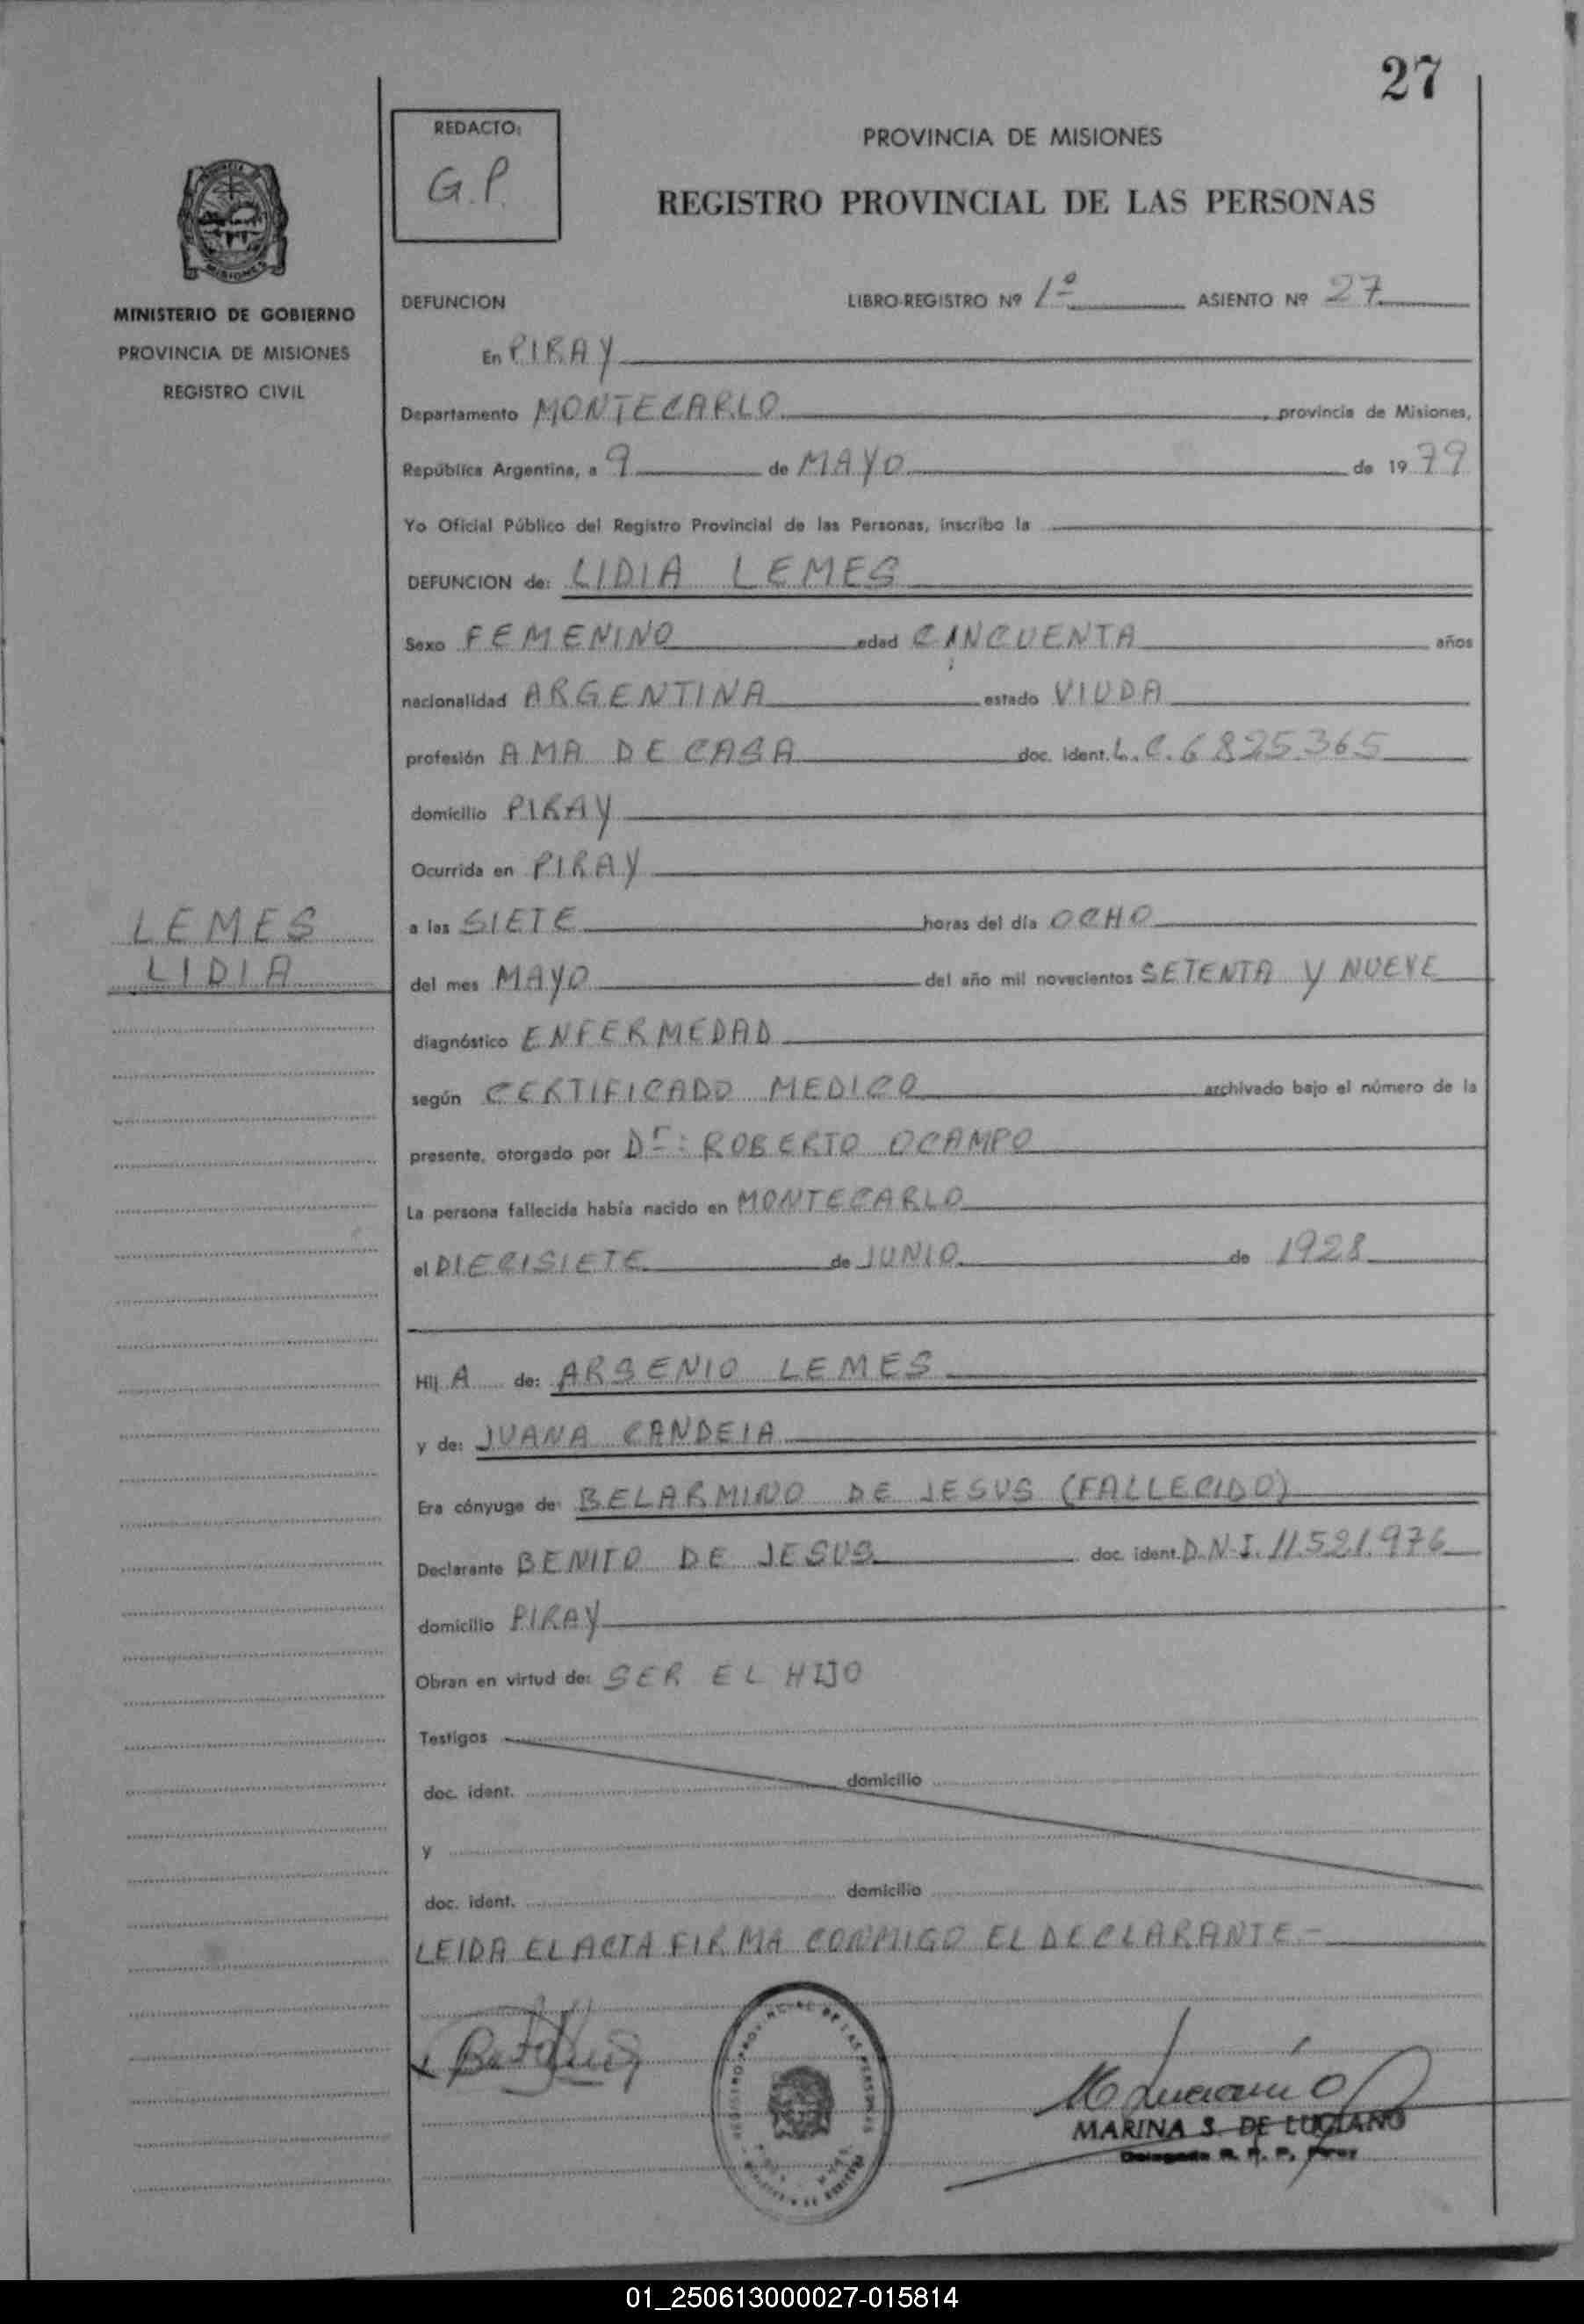 27
REDACTO:
G.P.
PROVINCIA DE MISIONES
REGISTRO PROVINCIAL DE LAS PERSONAS
MINISTERIO DE GOBIERNO
PROVINCIA DE MISIONES
REGISTRO CIVIL
DEFUNCION LIBRO-REGISTRO Nº 1º ASIENTO Nº 27
En PIRAY
Departamento MONTECARLO, provincia de Misiones,
República Argentina, a 9 de MAYO de 1979
Yo Oficial Público del Registro Provincial de las Personas, inscribo la
DEFUNCION de: LIDIA LEMES
Sexo FEMENINO edad CINCUENTA años
nacionalidad ARGENTINA estado VIUDA
profesión AMA DE CASA doc. ident. L.C. 6825365
domicilio PIRAY
Ocurrida en PIRAY
LEMES
LIDIA
a las SIETE horas del día OCHO
del mes MAYO del año mil novecientos SETENTA Y NUEVE
diagnóstico ENFERMEDAD
según CERTIFICADO MEDICO archivado bajo el número de la
presente, otorgado por Dr: ROBERTO OCAMPO
La persona fallecida había nacido en MONTECARLO
el DIECISIETE de JUNIO de 1928
Hij A de: ARSENIO LEMES
y de: JUANA CANDEIA
Era cónyuge de: BELARMINO DE JESUS (FALLECIDO)
Declarante BENITO DE JESUS doc. ident. D.N.I. 11.521.976
domicilio PIRAY
Obran en virtud de: SER EL HIJO
Testigos
doc. ident. domicilio
y
doc. ident. domicilio
LEIDA EL ACTA FIRMA CONMIGO EL DECLARANTE-
REGISTRO PROVINCIAL DE LAS PERSONAS
MARINA S. DE LUCIANO
Delegada R. P. P. Piray
01_250613000027-015814